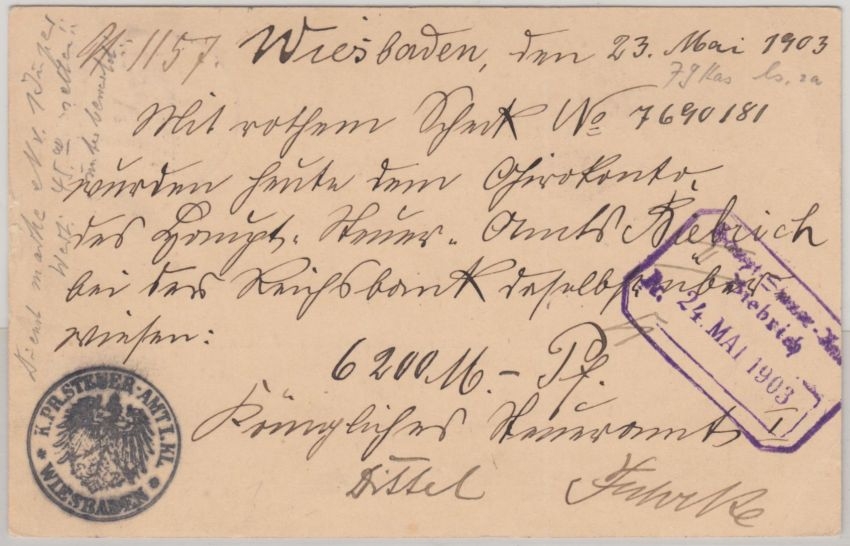 1157. Wiesbaden, den 23. Mai 1903
Mit rothem Scheck No 7690181
wurden heute dem Girokonto
des Haupt-Steuer-Amts Biebrich
bei der Reichsbank daselbst über
wiesen:
6200 M. - Pf.
Königliches Steueramt I
Dittel
K. PR. STEUER-AMT I. KL.
WIESBADEN
Biebrich
Pr. 24. MAI 1903
Dienst marke
Wert: 45.00